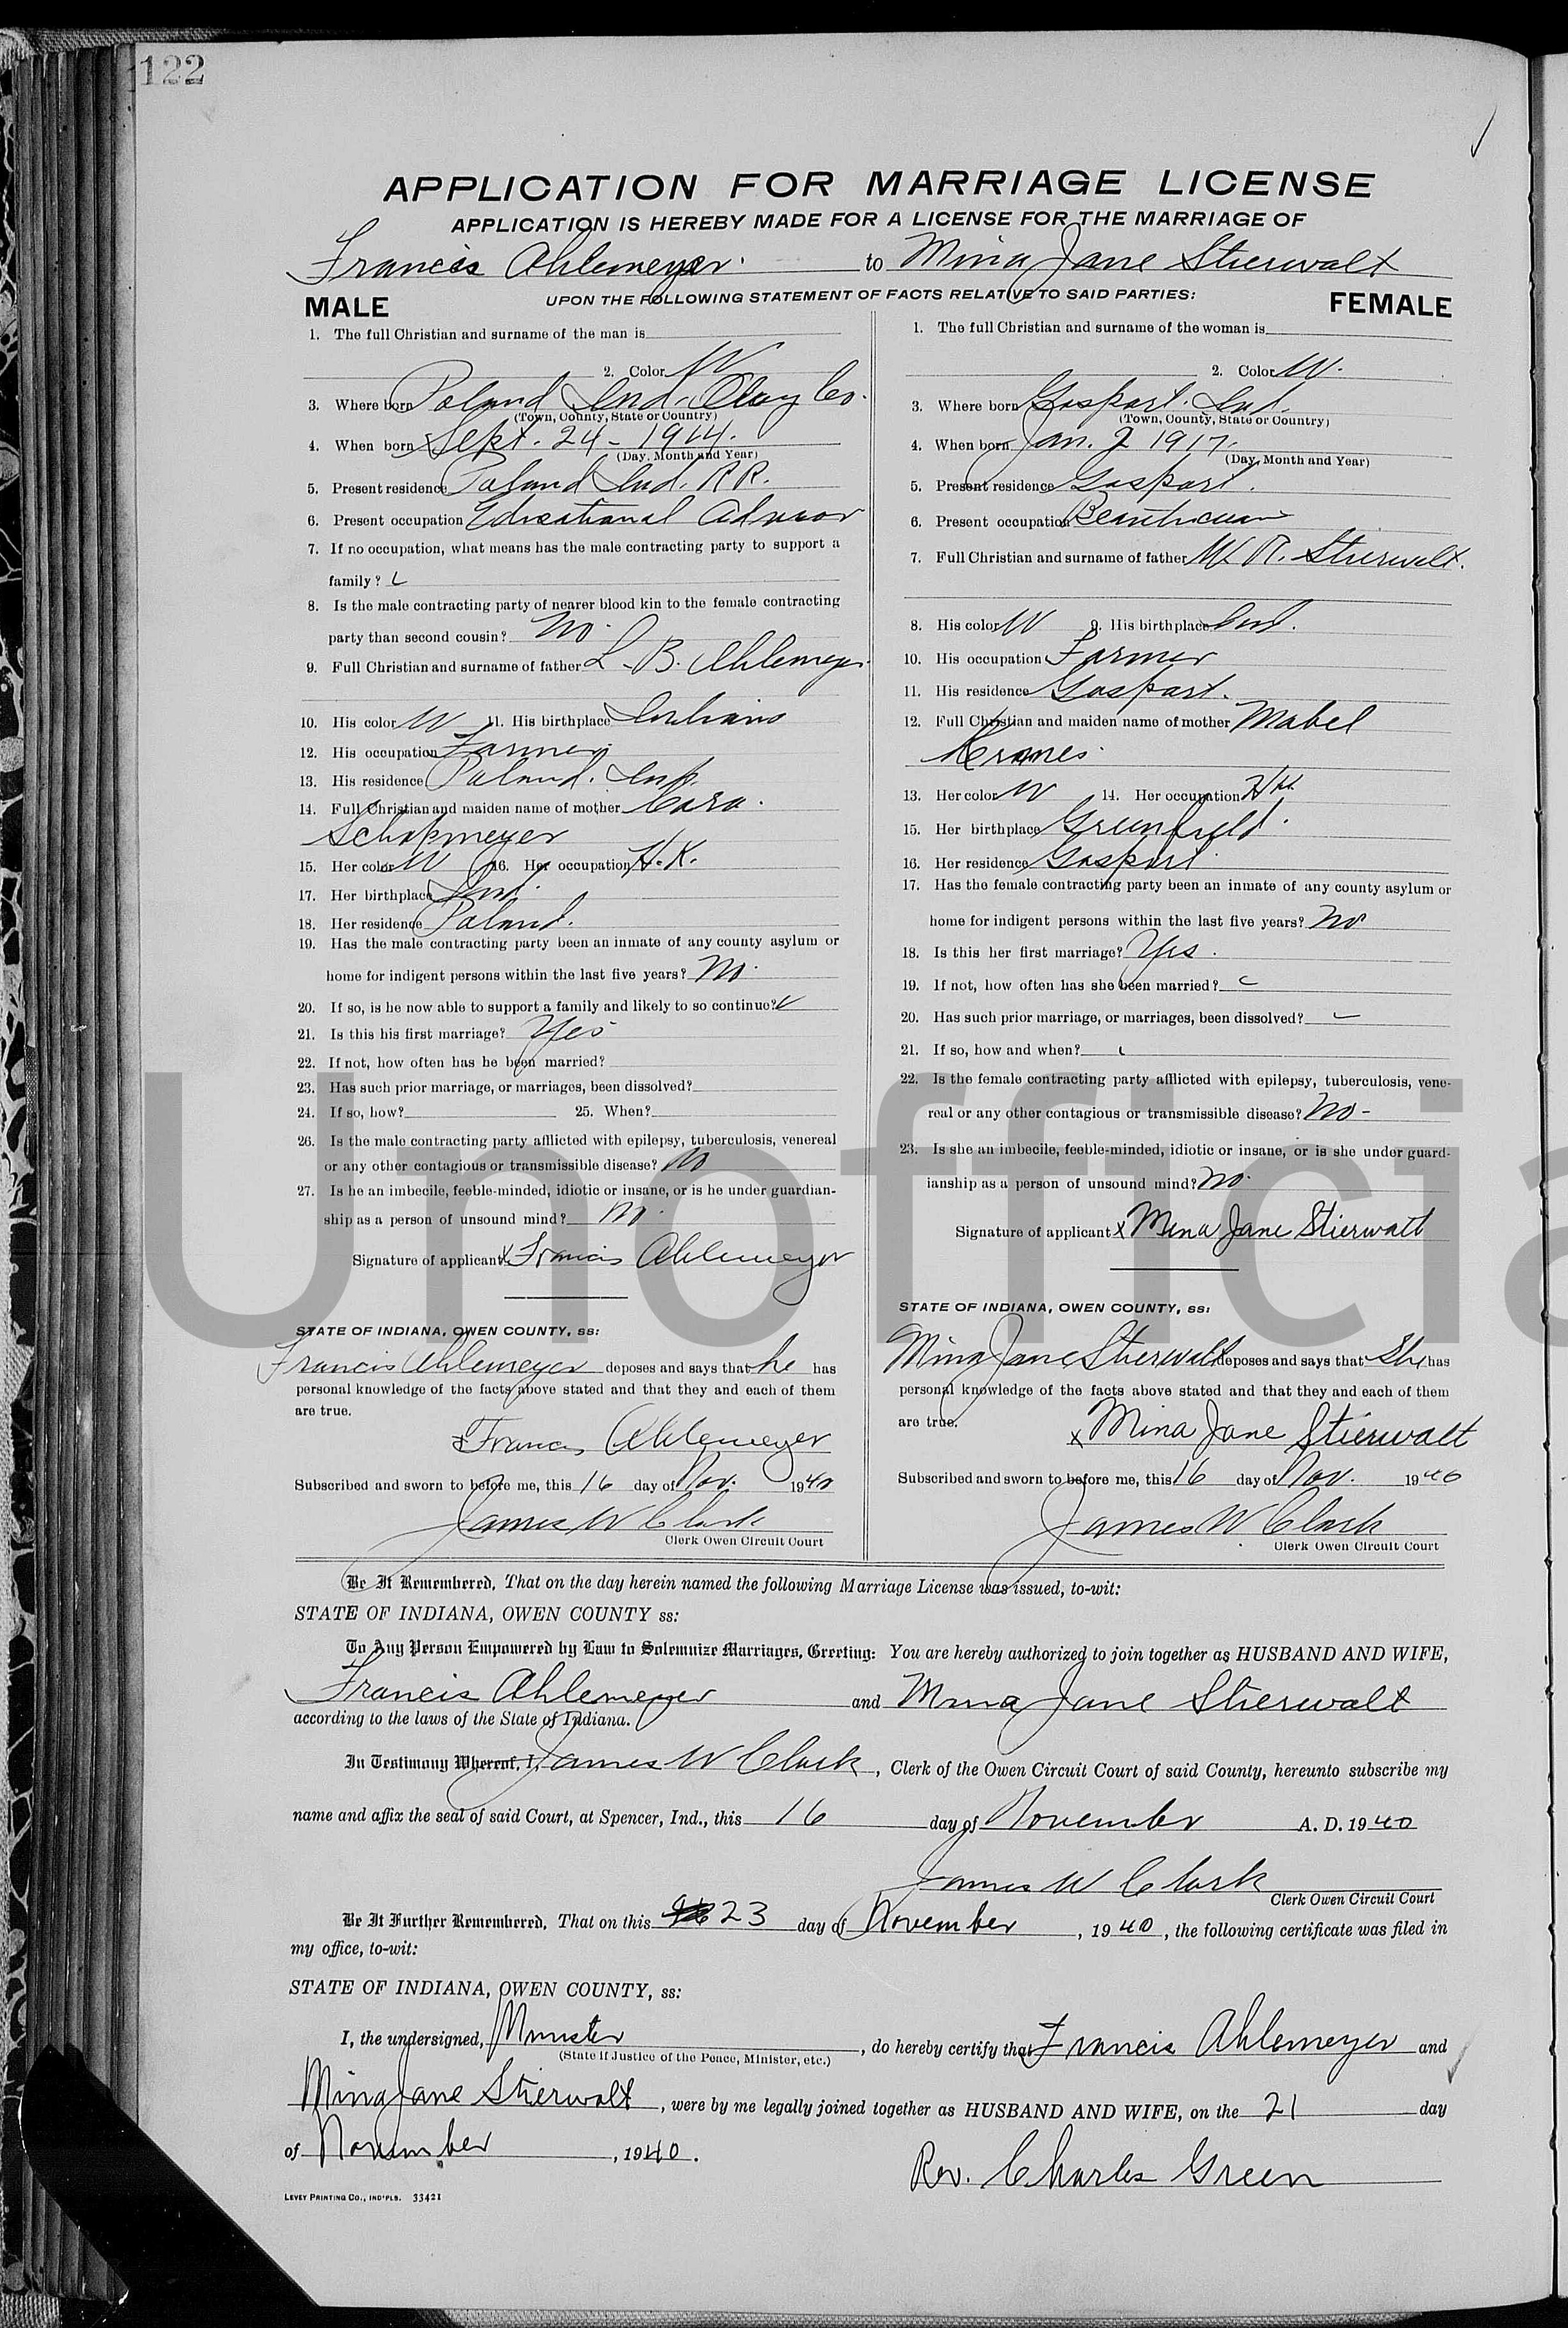 122
APPLICATION FOR MARRIAGE LICENSE
APPLICATION IS HEREBY MADE FOR A LICENSE FOR THE MARRIAGE OF
Francis Ahlemeyer. to Mina Jane Stierwalt
UPON THE FOLLOWING STATEMENT OF FACTS RELATIVE TO SAID PARTIES:
MALE
1. The full Christian and surname of the man is
2. Color W
3. Where born Poland Ind. Clay Co.
(Town, County, State or Country)
4. When born Sept. 24 - 1914.
(Day, Month and Year)
5. Present residence Poland Ind. RR.
6. Present occupation Educational Advisor
7. If no occupation, what means has the male contracting party to support a
family?
8. Is the male contracting party of nearer blood kin to the female contracting
party than second cousin? No.
9. Full Christian and surname of father L. B. Ahlemeyer
10. His color W 11. His birthplace Indiana
12. His occupation Farmer
13. His residence Poland. Ind.
14. Full Christian and maiden name of mother Cora.
Schopmeyer
15. Her color W 16. Her occupation H.K.
17. Her birthplace Ind.
18. Her residence Poland.
19. Has the male contracting party been an inmate of any county asylum or
home for indigent persons within the last five years? No.
20. If so, is he now able to support a family and likely to so continue?
21. Is this his first marriage? Yes
22. If not, how often has he been married?
23. Has such prior marriage, or marriages, been dissolved?
24. If so, how? 25. When?
26. Is the male contracting party afflicted with epilepsy, tuberculosis, venereal
or any other contagious or transmissible disease? No
27. Is he an imbecile, feeble-minded, idiotic or insane, or is he under guardian-
ship as a person of unsound mind? No.
Signature of applicant x Francis Ahlemeyer
STATE OF INDIANA, OWEN COUNTY, ss:
Francis Ahlemeyer deposes and says that he has
personal knowledge of the facts above stated and that they and each of them
are true.
x Francis Ahlemeyer
Subscribed and sworn to before me, this 16 day of Nov. 1940
James W Clark
Clerk Owen Circuit Court
FEMALE
1. The full Christian and surname of the woman is
2. Color W.
3. Where born Gosport. Ind.
(Town, County, State or Country)
4. When born Jan. 2 1917.
(Day, Month and Year)
5. Present residence Gosport.
6. Present occupation Beautician
7. Full Christian and surname of father R. Stierwalt.
8. His color W 9. His birthplace Ind.
10. His occupation Farmer
11. His residence Gosport.
12. Full Christian and maiden name of mother Mabel
13. Her color W 14. Her occupation
15. Her birthplace Greenfield.
16. Her residence Gosport.
17. Has the female contracting party been an inmate of any county asylum or
home for indigent persons within the last five years? No
18. Is this her first marriage? Yes.
19. If not, how often has she been married?
20. Has such prior marriage, or marriages, been dissolved?
21. If so, how and when?
22. Is the female contracting party afflicted with epilepsy, tuberculosis, vene-
real or any other contagious or transmissible disease? No -
23. Is she an imbecile, feeble-minded, idiotic or insane, or is she under guard-
ianship as a person of unsound mind? No.
Signature of applicant x Mina Jane Stierwalt
STATE OF INDIANA, OWEN COUNTY, ss:
Mina Jane Stierwalt deposes and says that She has
personal knowledge of the facts above stated and that they and each of them
are true.
x Mina Jane Stierwalt
Subscribed and sworn to before me, this 16 day of Nov. 1940
James W Clark
Clerk Owen Circuit Court
Be It Remembered, That on the day herein named the following Marriage License was issued, to-wit:
STATE OF INDIANA, OWEN COUNTY ss:
To Any Person Empowered by Law to Solemnize Marriages, Greeting: You are hereby authorized to join together as HUSBAND AND WIFE,
Francis Ahlemeyer and Mina Jane Stierwalt
according to the laws of the State of Indiana.
In Testimony Whereof, I, James W Clark, Clerk of the Owen Circuit Court of said County, hereunto subscribe my
name and affix the seal of said Court, at Spencer, Ind., this 16 day of November A. D. 1940
James W Clark
Clerk Owen Circuit Court
Be It Further Remembered, That on this 23 day of November, 1940, the following certificate was filed in
my office, to-wit:
STATE OF INDIANA, OWEN COUNTY, ss:
I, the undersigned, Minister, do hereby certify that Francis Ahlemeyer and
(State if Justice of the Peace, Minister, etc.)
Mina Jane Stierwalt, were by me legally joined together as HUSBAND AND WIFE, on the 21 day
of November, 1940.
Rev. Charles Green
LEVEY PRINTING CO., IND'PLS. 33421
Unofficia